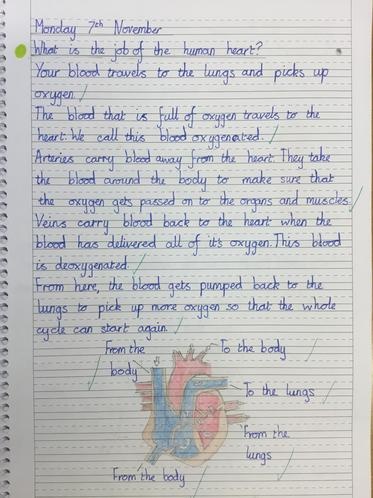 Monday 7th November
What is the job of the human heart?
Your blood travels to the lungs and picks up
oxygen.
The blood that is full of oxygen travels to the
heart. We call this blood oxygenated.
Arteries carry blood away from the heart. They take
the blood around the body to make sure that
the oxygen gets passed on to the organs and muscles.
Veins carry blood back to the heart when the
blood has delivered all of it's oxygen. This blood
is deoxygenated.
From here, the blood gets pumped back to the
lungs to pick up more oxygen so that the whole
cycle can start again.
From the
body
To the body
To the lungs
From the
lungs
From the body